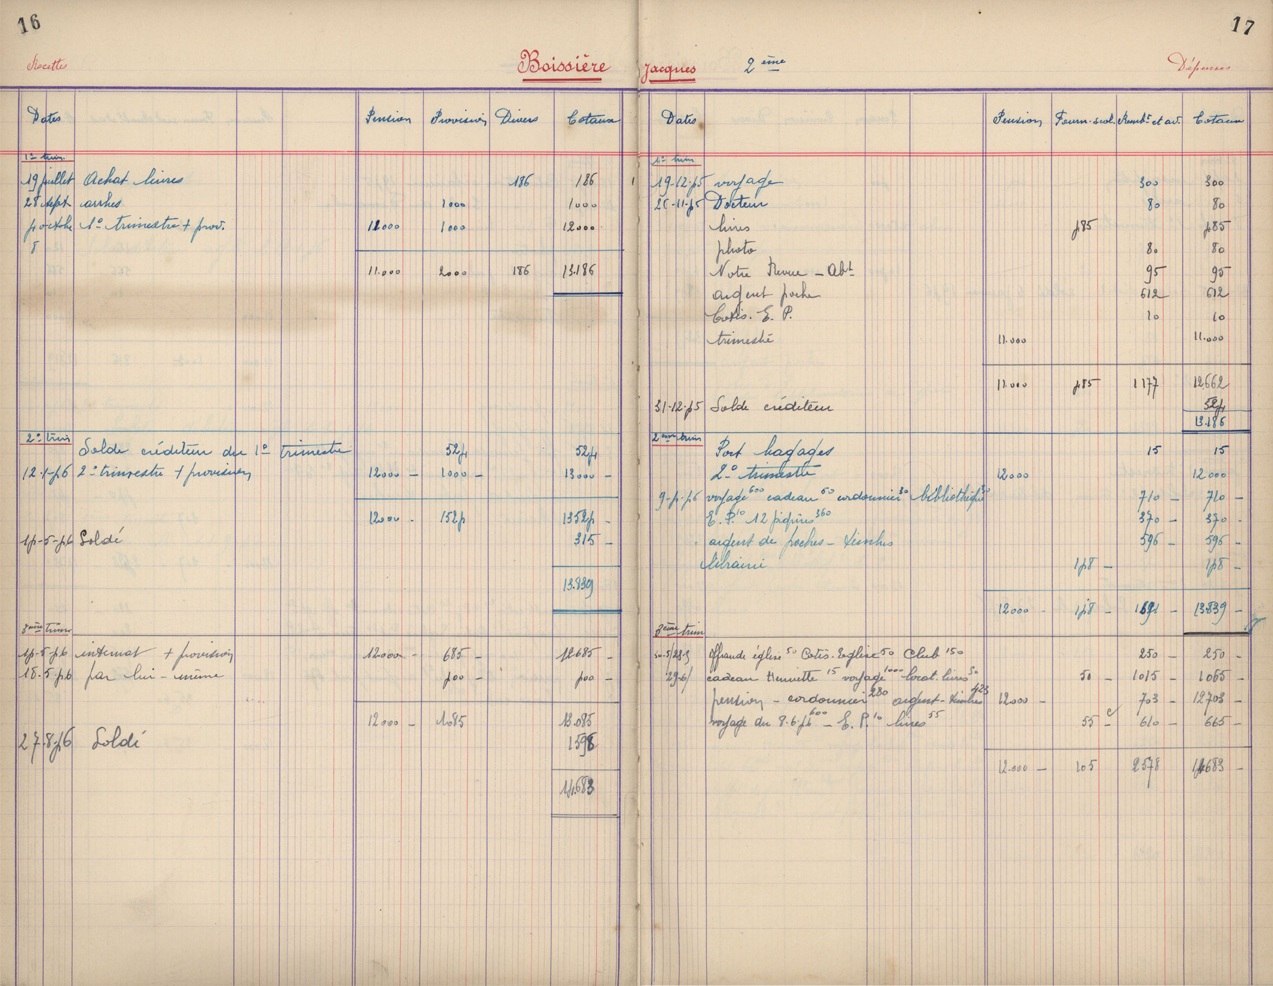 16
Recettes
Boissière
Dates Pension Provision Divers Totaux
1er trim
19 juillet Achat livres 186 186
28 sept arrhes 1000 1000
1er trimestre + prov. 11000 1000 12000
11.000 2000 186 13.186
2e trim Solde créditeur du 1er trimestre 524 524
12-1-56 2e trimestre + provision 12000 - 1000 - 13000 -
12000 - 1524 13524 -
14-5-56 Soldé 315 -
13.839
3ème trim
14-5-56 internat + provision 12000 - 685 - 12685 -
18-5-56 par lui-même 400 - 400 -
12000 - 1085 13.085
27-8-56 Soldé 1598
14.683
17
Jacques 2ème
Dépenses
Dates Pension Fourn-scol. Remb. et av. Totaux
1er trim
19-12-55 voyage 300 300
26-11-55 Docteur 80 80
livres 485 485
photo 80 80
Notre Revue - Abt 95 95
argent poche 612 612
Cotis. E. P. 10 10
trimestre 11.000 11.000
11000 485 1177 12662
31-12-55 Solde créditeur 524
13.186
2ème trim Port bagages 15 15
2e trimestre 12000 12000 -
9-4-56 voyage 600 cadeau 50 cordonnier 30 bibliothèque 30 710 - 710 -
E.P. 10 12 piqûres 360 370 - 370 -
argent de poches - timbres 596 - 596 -
librairie 148 - 148 -
12000 - 148 - 1691 - 13839 -
3ème trim
offrande église 50 Cotis. Eglise 50 Club 150 250 - 250 -
cadeau Henriette 15 voyage 1000 - locat. livres 50 50 - 1015 - 1065 -
pension - cordonnier 280 argent - timbres 423 12000 - 703 - 12703 -
voyage du 9.6.56 600 - E.P. 10 livres 55 55 - 610 - 665 -
12.000 - 105 2578 14683 -